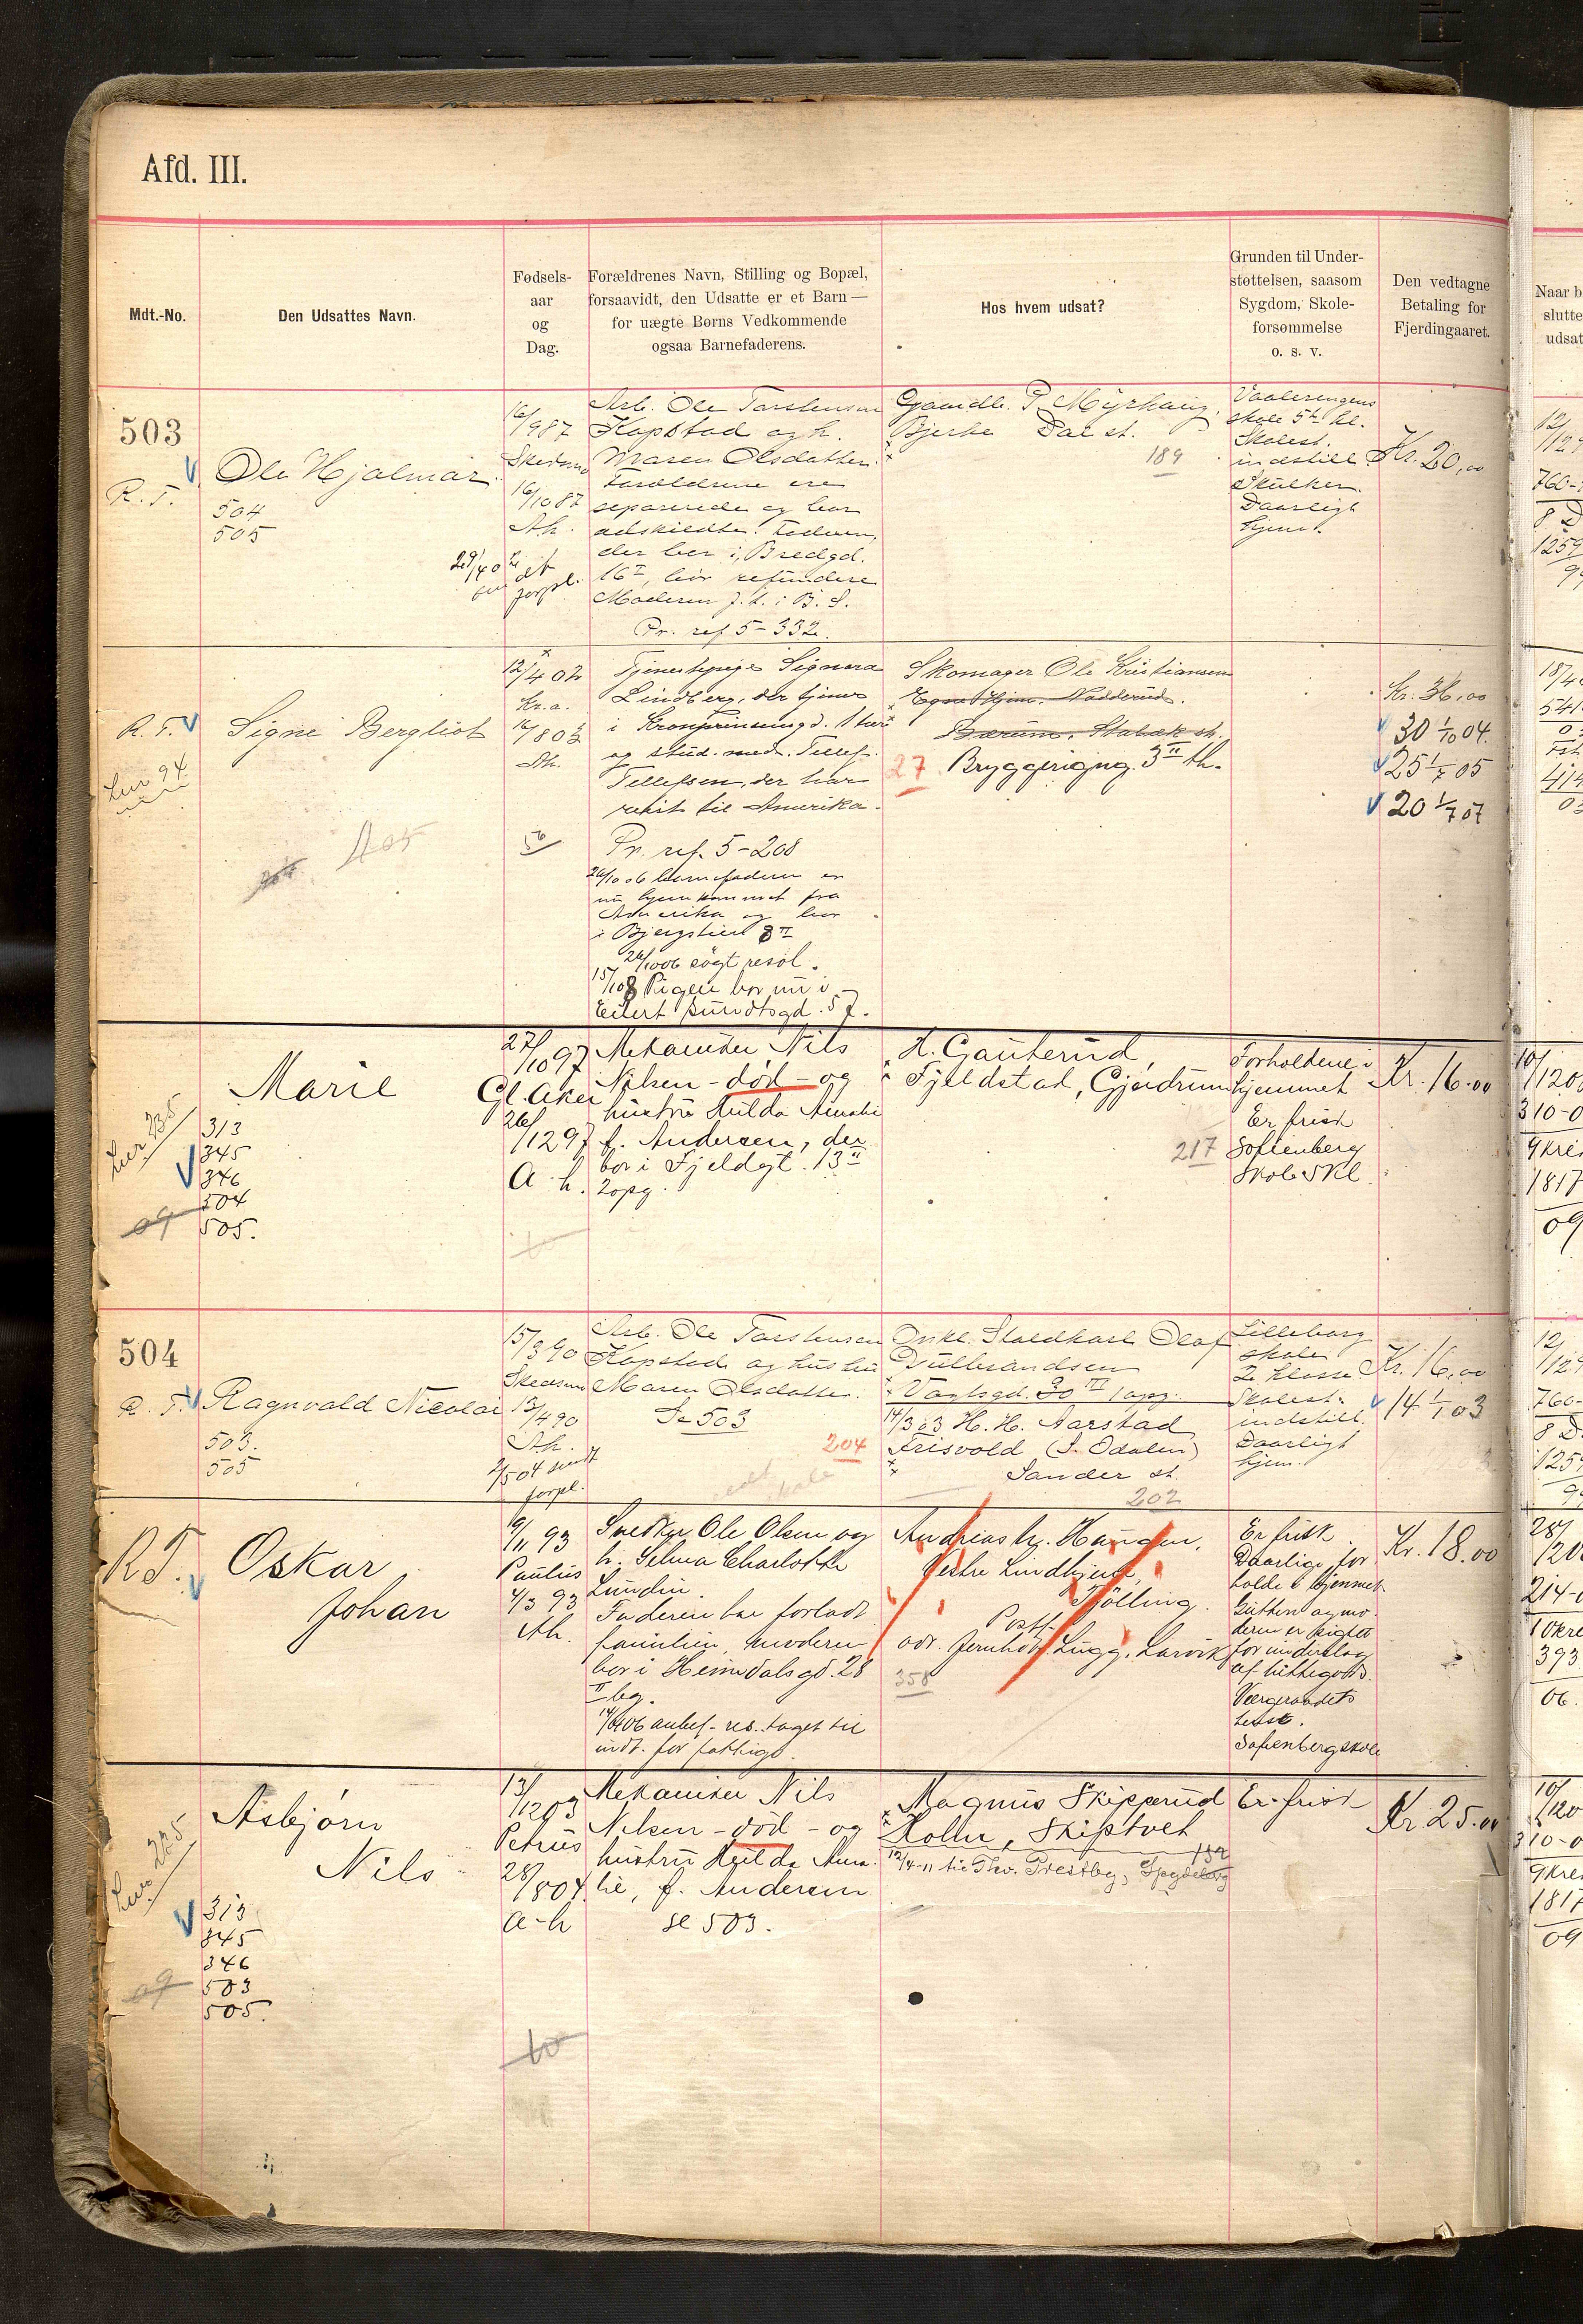 Afd. III.
Mdt.-No.
Den Udsattes Navn.
Fødsels-
aar
og
Dag.
Forældrenes Navn, Stilling og Bopæl,
forsaavidt, den Udsatte er et Barn —
for uægte Børns Vedkommende
ogsaa Barnefaderens.
Hos hvem udsat?
Grunden til Under-
støttelsen, saasom
Sygdom, Skole-
forsømmelse
o. s. v.
Den vedtagne
Betaling for
Fjerdingaaret.
Naar b
slutte
udsat
503
R. T.
Ole Hjalmar
504
505
16/987
Skedsmo
16/1087
Ah.
Arb. Ole Torstensen
Kopstad og h.
Maren Olsdatter.
Forældrene ere
separerede og bor
adskildte. Faderen,
der bor i Bredgd.
16 I, bør refundere
Moderen f. t. i B. S.
Pr. ref 5-332.
Gaardb. P. Myrhaug,
Bjerke Dal st.
189
Vaalerengens
skole 5te kl.
Skolest.
indstill.
Skulker.
Daarligt
hjem.
Kr. 20,00
R. T.
Signe Bergliot
405
12/402
Kr.a.
16/802
Ah.
Tjenestepige Signora
Lindberg, der tjener
i Kronprinsensgd. 1
og stud. med. Tellef
Tellefsen, der har
reist til Amerika.
Pr. ref. 5-208
26/1006 barnefaderen er
nu hjemkommet fra
Amerika og bor
i Bjergstien 8 II
26/1006 søgt resol.
15/108 Pigen bor nu i
Eilert Sundtsgd. 57.
Skomager Ole Kristiansen
Egne Hjem, Nadderud.
Bærum, Stabæk st.
27
Bryggerigng. 3 II th.
Kr. 36,00
30 1/10 04.
25 1/7 05
20 1/7 07
Marie
313
345
346
504
505.
09
27/1097
Gl. Aker
26/1297
A. h.
Mekaniker Nils
Nilsen - død - og
hustru Hulda Amalie
f. Andersen, der
bor i Fjeldgt. 13 II
2opg.
A. Gauterud,
Fjeldstad, Gjerdrum
217
Forholdene i
hjemmet
Er frisk
Sofienberg
Skole 5 Kl.
Kr. 16.00
504
R. T.
Ragnvald Nicolai
503.
505
15/390
Skedsmo
13/490
Ah.
2/504 sendt
forpl.
Arb. Ole Torstensen
Kopstad og hustru
Maren Olsdatter.
Se 503
204
Onkl. Staldkarl Olaf
Gulbrandsen
Vogtsgd. 30 III 1 opg.
14/303 H. H. Aarstad
Frisvold (S. Odalen)
Sander st.
202
Lilleborg
skole
2. Klasse
Skolest.
indstill.
Daarligt
hjem.
Kr. 16,00
14 1/1 03
R.T.
Oskar
Johan
9/11 93
Paulus
4/3 93
Ah.
Snedker Ole Olsen og
h. Selma Charlotte
Lundin.
Faderen har forladt
familien, moderen
bor i Heimdalsgd. 28
II bg.
Andreas Kr. Haugen,
Vestre Lindhjem,
Tjølling.
Postf.
adr. Jernhdlr. Lugg, Larvik
358
Er frisk
Daarlige for
holde i hjemmet
Gutten og mo-
deren er sigtet
for underslag
af hittegods.
Værgeraadets
Sofienbergskole
Kr. 18.00
Asbjørn
Nils
313
345
346
503
505.
09
13/1203
Petrus
28/804
a-h
Mekaniker Nils
Nilsen - død - og
hustru Hulda Ama-
lie, f. Andersen
se 503.
Magnus Skipperud
Holm, Skiptvet
12/4-11 til Thv. Prestby, Spydeberg
Er frisk
Kr. 25.00